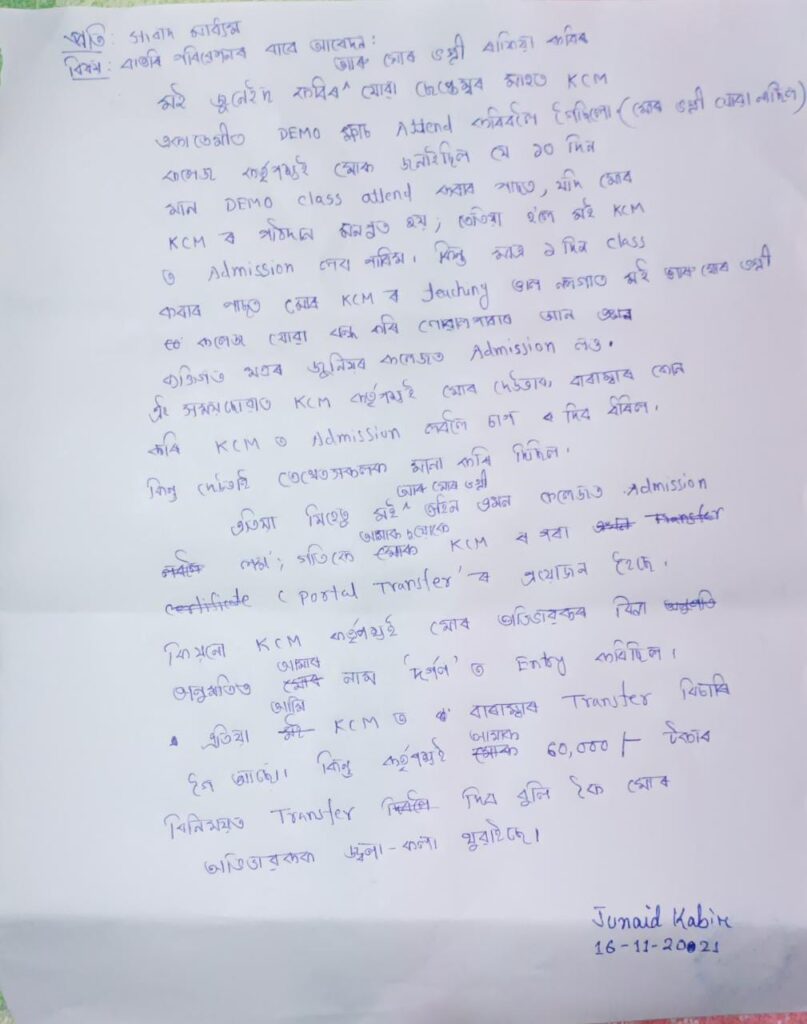 প্ৰতি : সংবাদ মাধ্যম
বিষয় : বাতৰি পৰিবেশনৰ বাবে আবেদন :
আৰু মোৰ ভগ্নী ৰাশিয়া কবিৰ
মই জুনেইদ কবিৰ^ যোৱা ছেপ্তেম্বৰ মাহত KCM
একাডেমীত DEMO ক্লাচ Attend কৰিবলৈ গৈছিলো (মোৰ ভগ্নী যোৱা নাছিল)
কলেজ কৰ্তৃপক্ষই মোক জনাইছিল যে ১০ দিন
মান DEMO class attend কৰাৰ পাছত, যদি মোৰ
KCM ৰ পাঠদান মনঃপুত হয়; তেতিয়া হলে মই KCM
ত Admission লব পাৰিম। কিন্তু মাত্ৰ ১ দিন class
কৰাৰ পাছত মোৰ KCM ৰ teaching ভাল নলগাত মই আৰু মোৰ ভগ্নী
কলেজ যোৱা বন্ধ কৰি গোৱালপাৰাৰ আন এখন
ব্যক্তিগত খণ্ডৰ জুনিয়ৰ কলেজত Admission লওঁ।
এই সময়ছোৱাত KCM কৰ্তৃপক্ষই মোৰ দেউতাক বাৰম্বাৰ ফোন
কৰি KCM ত Admission লবলৈ চাপ দি ধৰিল।
কিন্তু দেউতাই তেখেতসকলক মানা কৰি দিছিল।
আৰু মোৰ ভগ্নী
এতিয়া যিহেতু মই^ আন এখন কলেজত Admission
আমাক দুয়োকে
লবলৈ ল'ম; গতিকে মোক KCM ৰ পৰা এখন Transfer
certificate ( Portal Transfer' ৰ প্ৰয়োজন হৈছে।
কিয়নো KCM কৰ্তৃপক্ষই মোৰ অভিভাৱকৰ বিনা অনুমতি
আমাৰ
অনুমতিত মোৰ নাম 'দৰ্পণ' ত Entry কৰিছিল।
আমি
এতিয়া মই KCM ত বাৰম্বাৰ Transfer বিচাৰি
আমাক
গৈ আছো। কিন্তু কৰ্তৃপক্ষই মোক 60,000/- টকাৰ
বিনিময়ত Transfer দিবলৈ দিব বুলি কৈ মোৰ
অভিভাৱকক জ্বলা-কলা খুৱাইছে।
Junaid Kabir
16-11-2021